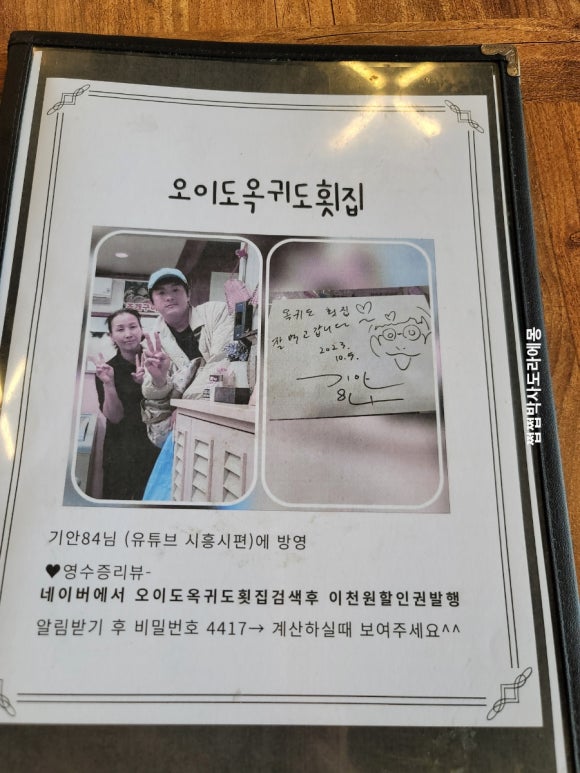 오이도옥귀도횟집
옥귀도 횟집
잘 먹고 갑니다
2023.
10.5.
기안
84
기안84님 (유튜브 시흥시편)에 방영
♥영수증리뷰-
네이버에서 오이도옥귀도횟집검색후 이천원할인권발행
알림받기 후 비밀번호 4417→ 계산하실때 보여주세요^^
쩝쩝박사도라에몽